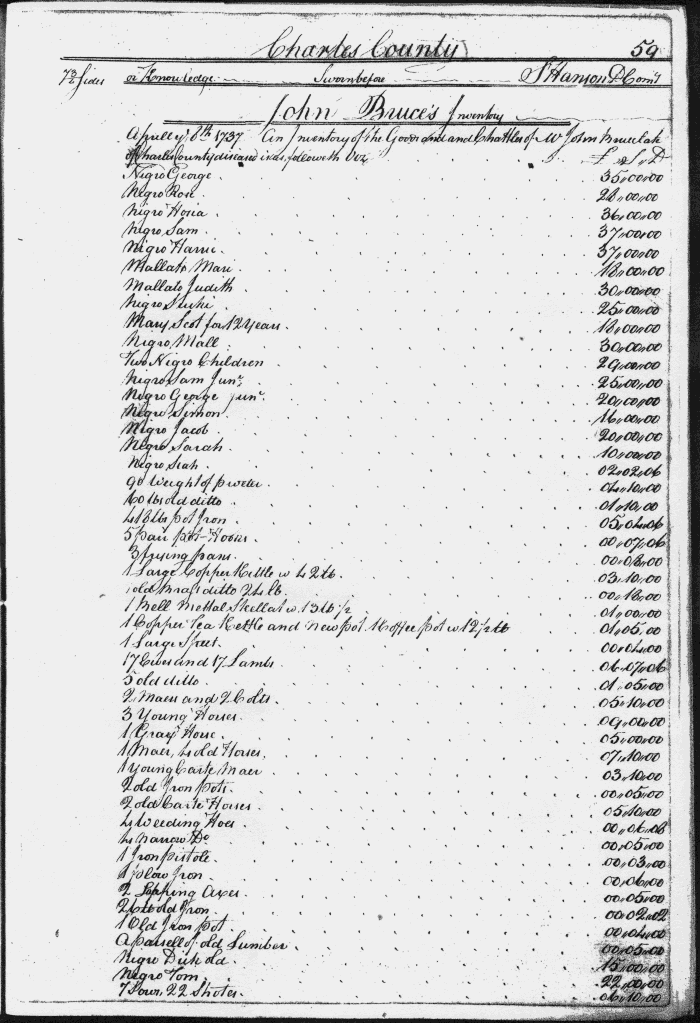 Charles County 59
73 Sides or Knowledge Sworn before S Hanson D Com'y
John Bruce's Inventory
Aprill ye 8th 1737 An Inventory of the Goods and Chattles of Mr John Bruce late
of Charles County diseased is as followeth Viz £ S D
Negro George 35,00,00
Negro Rose 28,00,00
Negro 36,00,00
Negro Sam 37,00,00
Negro Harri 37,00,00
Mallato Mari 18,00,00
Mallato Judith 30,00,00
Negro Suchi 25,00,00
Mary Scot for 12 Years 18,00,00
Negro Mall 30,00,00
Two Negro Children 29,00,00
Negro Sam Junr 25,00,00
Negro George Junr 20,00,00
Negro Simon 16,00,00
Negro Jacob 20,00,00
Negro Sarah 10,00,00
Negro 02,02,06
90 Weight of pweter 04,10,00
60 lbs old ditto 01,10,00
413 lbs pot Iron 05,04,06
5 pair pot Hooks 00,07,06
3 frying pans 00,08,00
1 Large Copper Kettle w 42 lb 03,10,00
1 old Brass ditto 24 lb 00,18,00
1 Bell Mettal Skellat w 13 lb 1/2 01,00,00
1 Copper Tea Kettle and New pot 1 Coffee pot w 12 1/2 lb 01,05,00
1 Large 00,04,00
17 Ewes and 17 Lambs 06,07,06
5 old ditto 01,05,00
2 Maers and 2 Colts 05,10,00
3 Young Horses 09,00,00
1 Gray Horse 05,00,00
1 Maer, 4 old Horses 07,10,00
1 Young Carte Maer 03,10,00
2 old Iron Pots 00,05,00
2 old Carte Horses 05,10,00
4 Weeding Hoes 00,06,08
4 Narrow Do 00,05,00
1 Iron Pistole 00,03,00
1 plow Iron 00,06,00
2 Lopping Axes 00,05,00
26 lb old Iron 00,02,02
1 Old Iron Pot 00,04,00
A parsell of old Lumber 00,05,00
Negro Dick old 15,00,00
Negro Tom 22,00,00
7 Sows, 22 Shotes 06,10,00